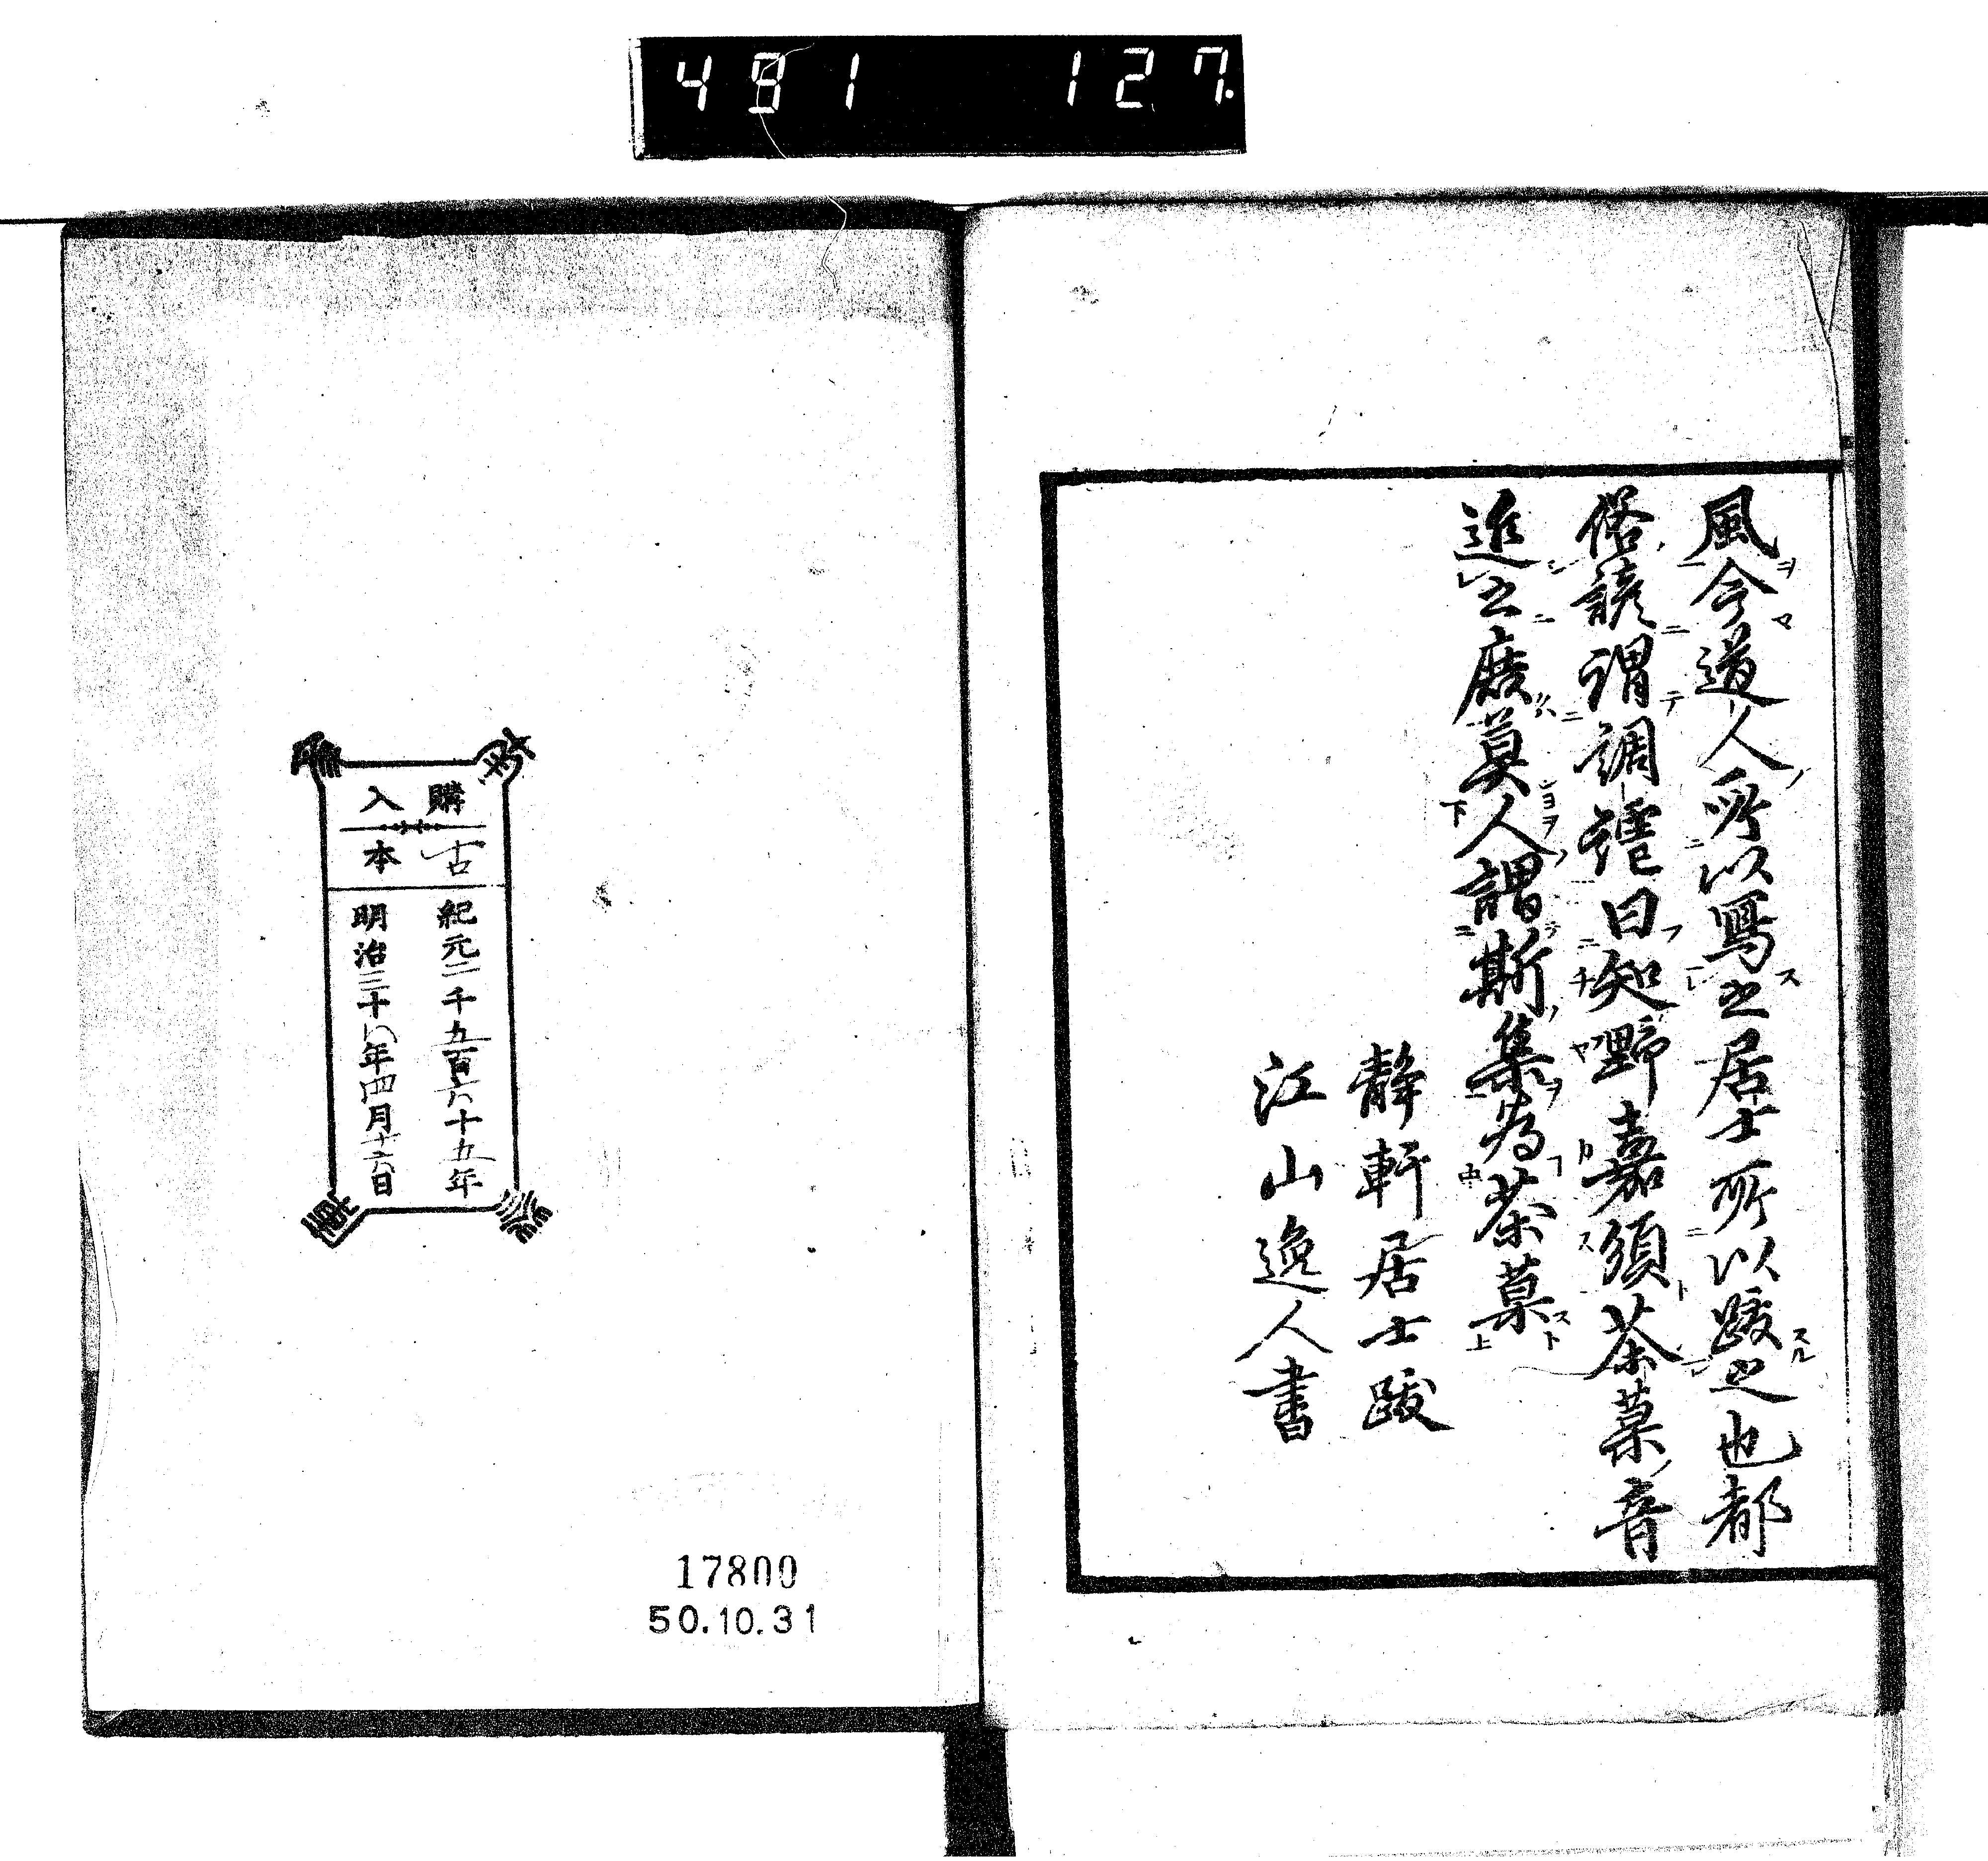 481 127.
風今道人所以寫之居士所以跋之也都
俗諺謂調謔曰知野嘉須茶菓音
進之庶莫人謂斯集為茶菓
靜軒居士跋
江山逸人書
購入
古本
紀元二千五百六十五年
明治三十八年四月十六日
17800
50.10.31